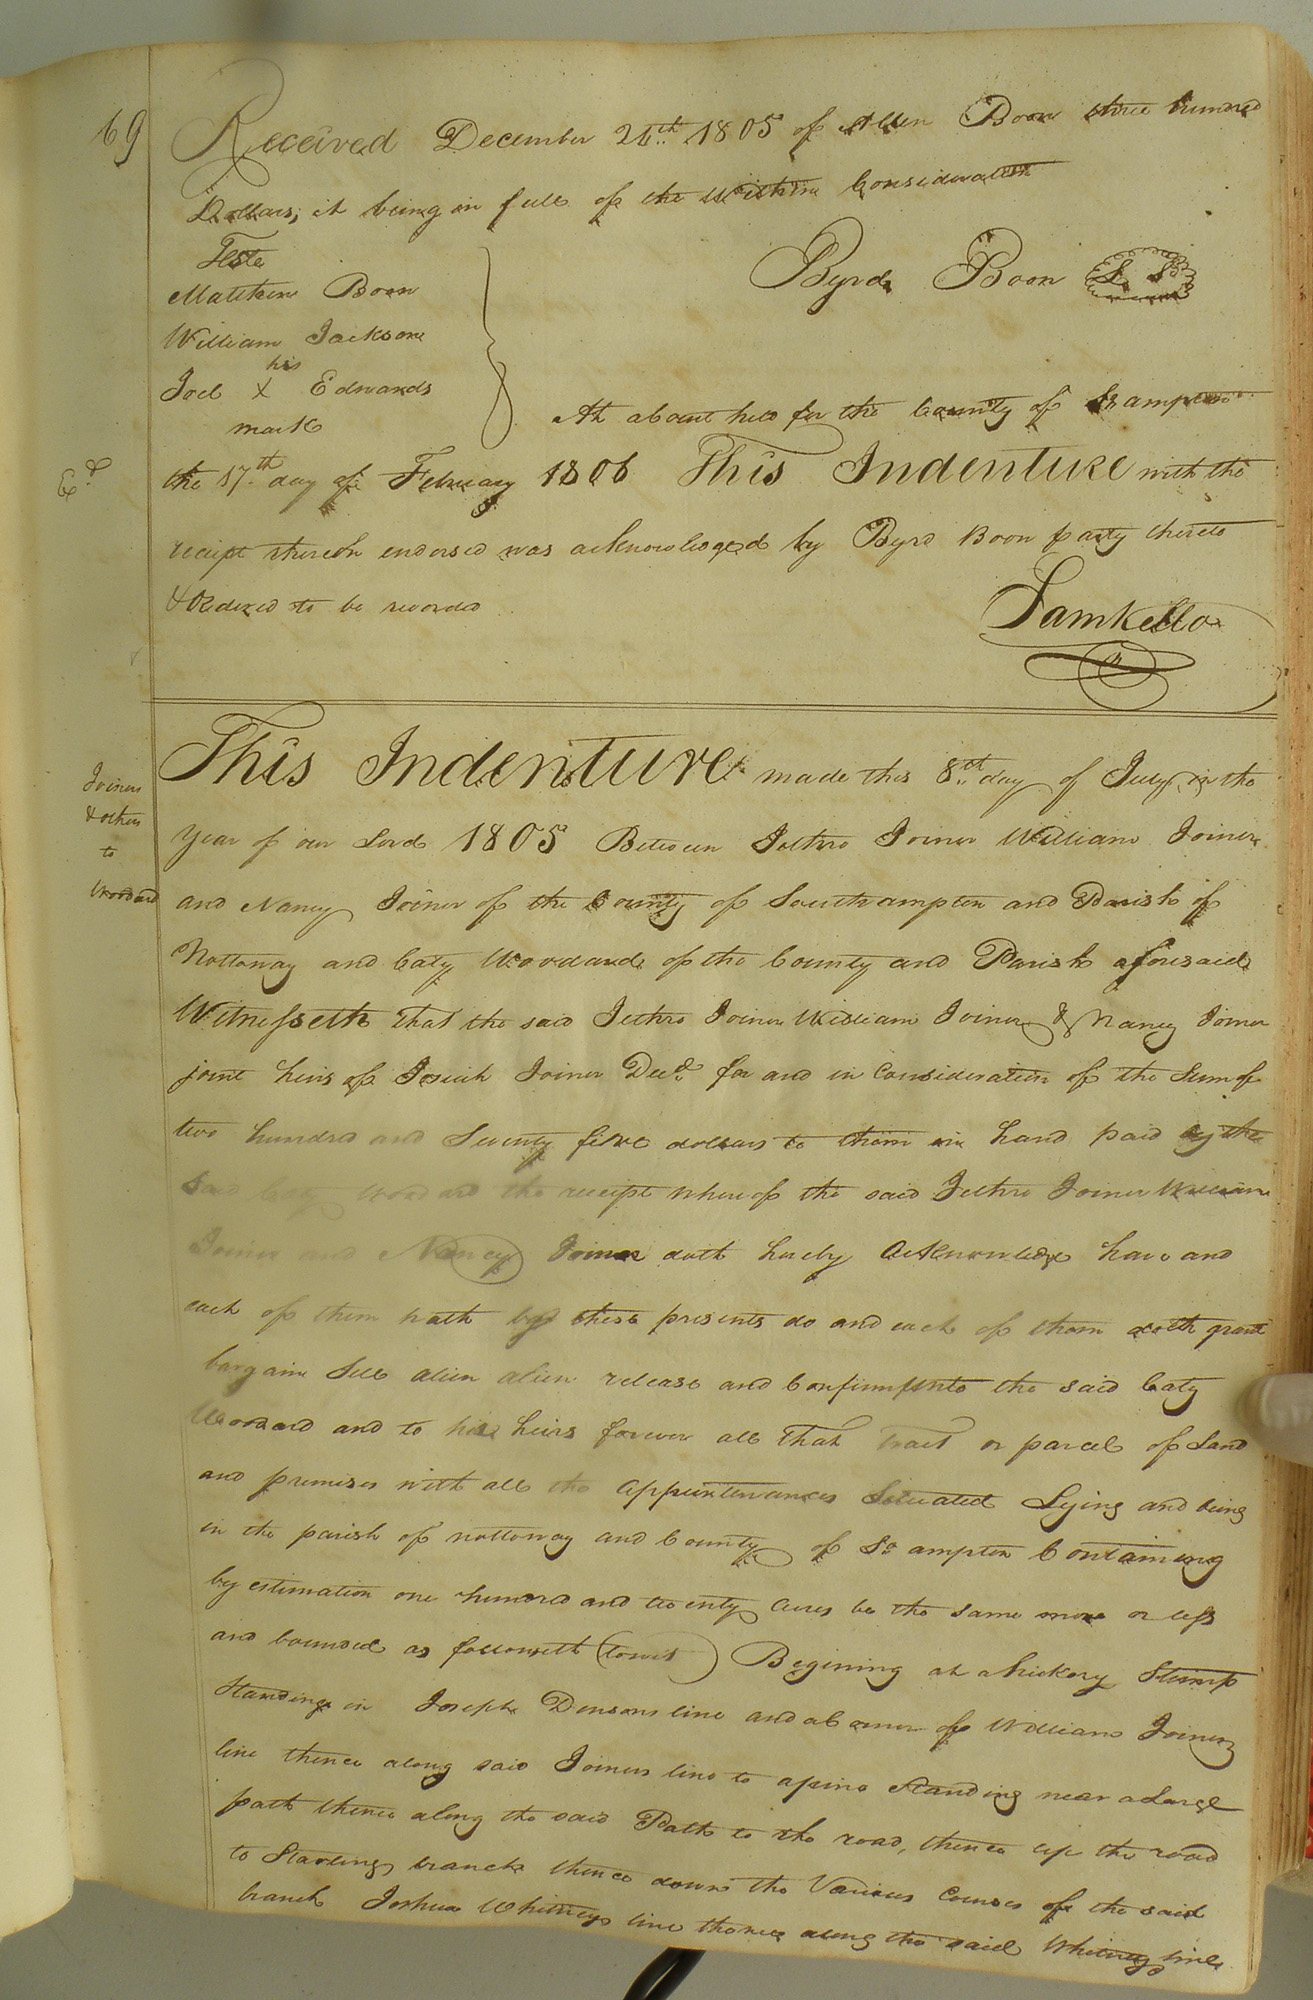 69
Received December 26th 1805 of Allen Boon three hundred
Dollars, it being in full of the within Consideration
Teste
Matthew Boon
William Jackson
his
Joel X Edwards
mark
Byrd Boon L S
At a bourt held for the County of So ampton
Ed
the 17th day of February 1806 This Indenture with the
receipt thereon endorsed was acknowledged by Byrd Boon party thereto
& Ordered to be recorded
Sam Kello
Joiners
& others
to
Woodard
This Indenture made this 8th day of July in the
Year of our Lord 1805 Between Jethro Joiner William Joiner
and Nancy Joiner of the County of Southampton and Parish of
Nottoway and Caty Woodard of the County and Parish aforesaid
Witnesseth that the said Jethro Joiner William Joiner & Nancy Joiner
joint heirs of Josiah Joiner Decd. for and in Consideration of the Sum of
two hundred and Seventy five dollars to them in hand paid by the
said Caty Woodard the receipt whereof the said Jethro Joiner William
Joiner and Nancy Joiner doth hereby acknowledge have and
each of them hath by these presents do and each of them doth grant
bargain Sell alien alien release and Confirm unto the said Caty
Woodard and to his heirs forever all that tract or parcel of Land
and premises with all the appurtenances Situated Lying and being
in the parish of nottoway and County of So ampton Containing
by estimation one hundred and twenty acres be the same more or less
and bounded as followeth (towit) Begining at a hickory Stump
Standing in Joseph Densons line and a Corner of William Joiners
line thence along said Joiners line to a pine Standing near a Large
path thence along the said Path to the road, thence up the road
to Starlings branch thence down the Various Courses of the said
branch Joshua Whitneys line thence along the said Whitneys line